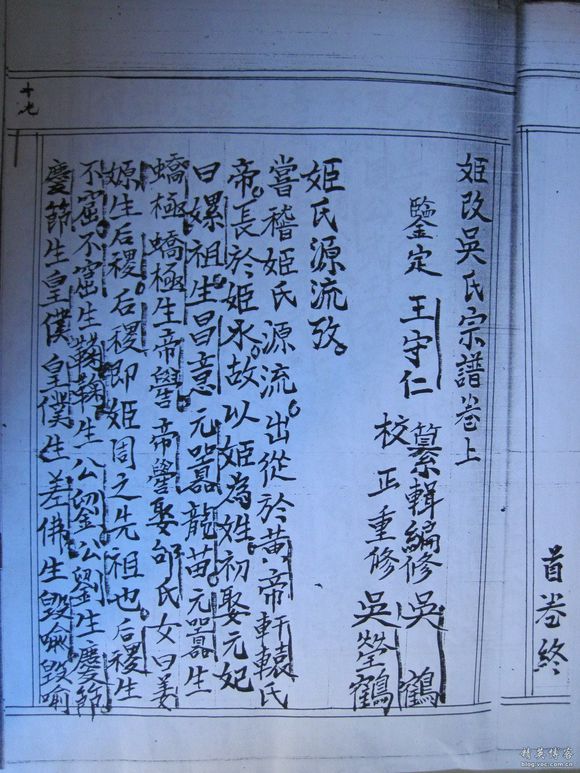 首卷終
姬改吳氏宗譜卷上
鑒定 王守仁 纂輯編修 吳鶴
校正重修 吳瑩鶴
姬氏源流攷
嘗稽姬氏源流出從於黃帝軒轅氏
帝長於姬水故以姬為姓初娶元妃
曰嫘祖生昌意元囂龍苗元囂生
蟜極蟜極生帝嚳帝嚳娶邰氏女曰姜
嫄生后稷后稷即姬周之先祖也后稷生
不窋不窋生鞠鞠生公劉公劉生慶節
慶節生皇僕皇僕生差佛生毀喻毀喻
十七
精英博客
blog.voc.com.cn